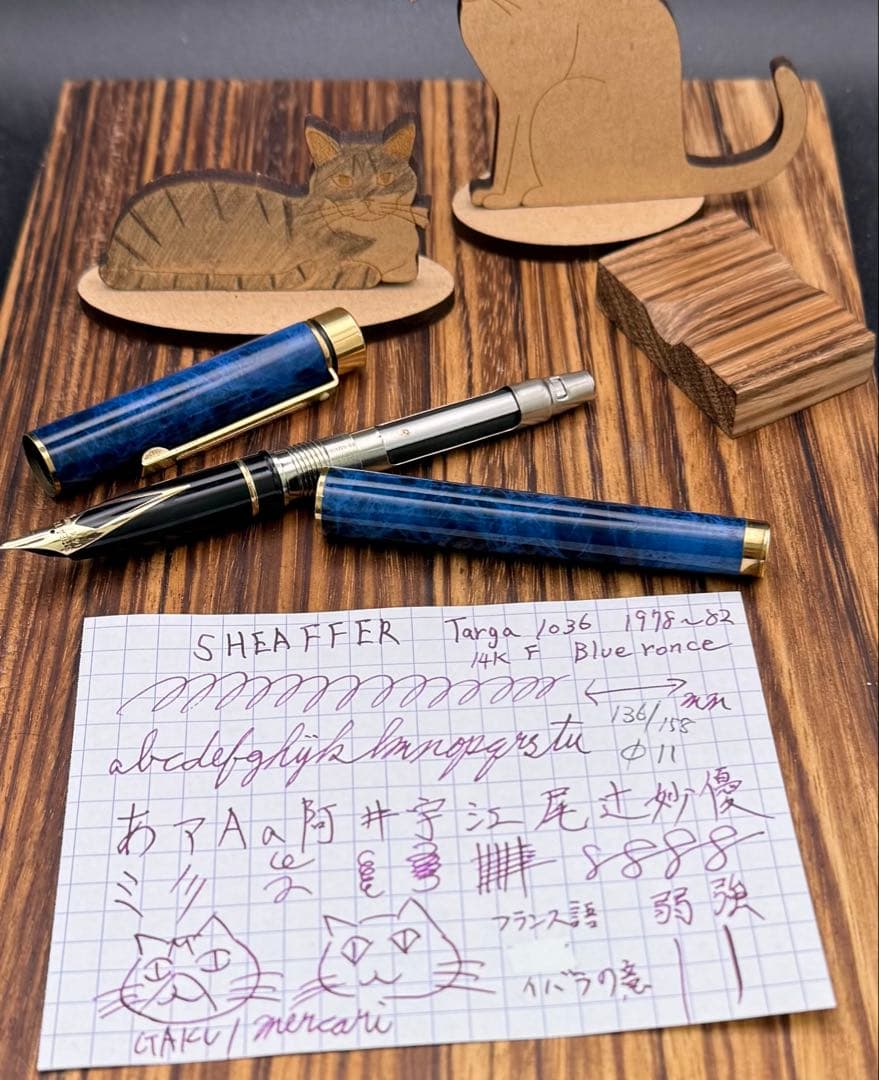 SHEAFFER Targa 1036 1978~82
14K F Blue ronce
mm
136/158
φ11
abcdefghijklmnopqrstu
あアAa阿井宇江尾辻妙優
フランス語 弱 強
イバラの意
OTAKU/mercari